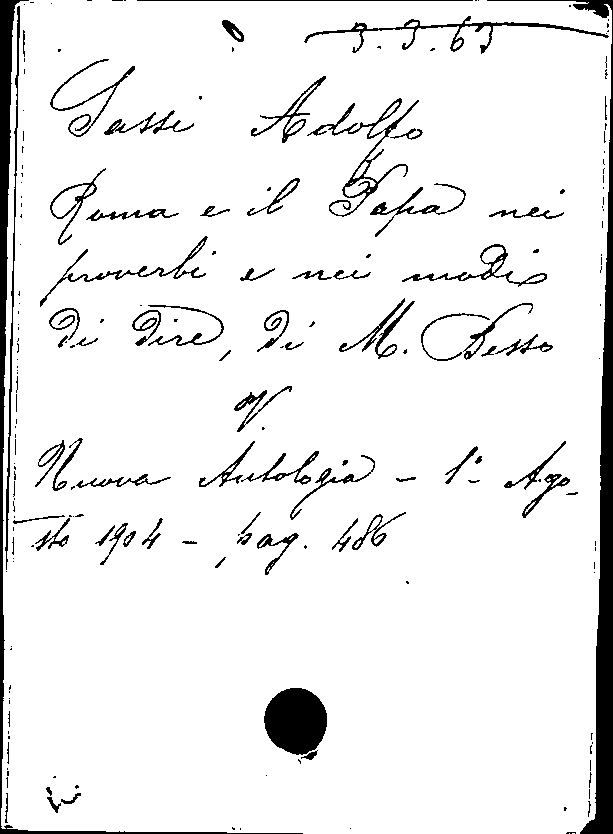 3.3.63
Sassi Adolfo
Roma e il Papa nei
proverbi e nei modi
di dire, di M. Besso
V.
Nuova Antologia - 1º Ago-
sto 1904 - pag. 486